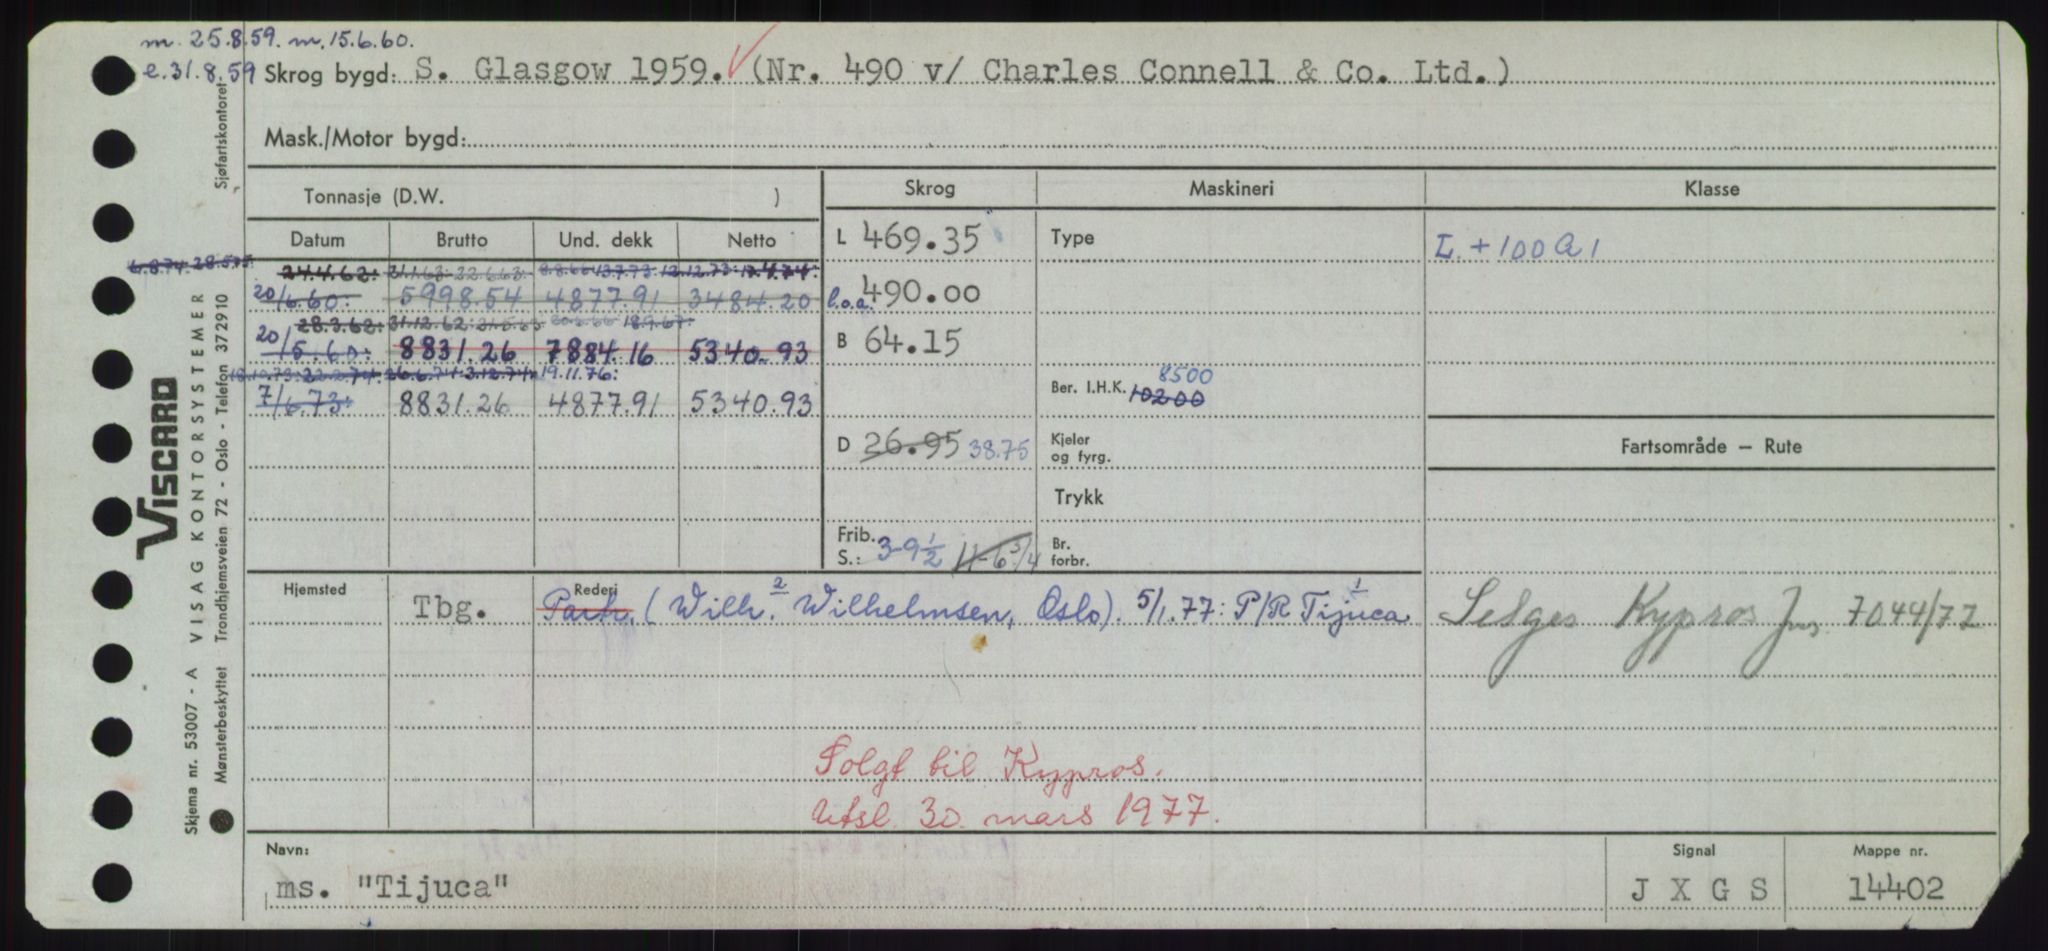 m. 25.8.59. m. 15.6.60.
e. 31.8.59 Skrog bygd: S. Glasgow 1959. (Nr. 490 v/ Charles Connell & Co. Ltd.)
Mask./Motor bygd:
Tonnasje (D.W. )
Skrog Maskineri Klasse
Datum Brutto Und. dekk Netto
L 469.35 Type L + 100 A 1
6.8.74. 28.5.75
24.4.62: 21.1.63: 22.6.63: 8.8.66 13.7.73: 12.12.73: 17.4.74:
20/6.60: 5998.54 4877.91 3484.20 l.o.a. 490.00
28.3.62: 31.12.62: 21.5.63 18.9.67:
20/5.60: 8831.26 7884.16 5340.93 B 64.15
18.10.73: 22.2.74: 26.6.74: 3.12.74: 19.11.76:
7/6.73: 8831.26 4877.91 5340.93
Ber. I.H.K. 10200 8500
Fartsområde — Rute
D 26.95 38.75 Kjeler og fyrg.
Trykk
Frib. S.: 3-9½ 11-6¾ Br. forbr.
Hjemsted Rederi
Tbg. Partr. (Wilh.² Wilhelmsen, Oslo). 5/1.77: P/R Tijuca¹ Selges Kypros Jnr. 7044/77
Solgt til Kypros.
Utsl. 30. mars 1977.
Navn: Signal Mappe nr.
ms. "Tijuca" J X G S 14402
Sjøfartskontoret
VISCARD
Skjema nr. 53007 - A VISAG KONTORSYSTEMER
Mønsterbeskyttet Trondhjemsveien 72 - Oslo - Telefon 372910